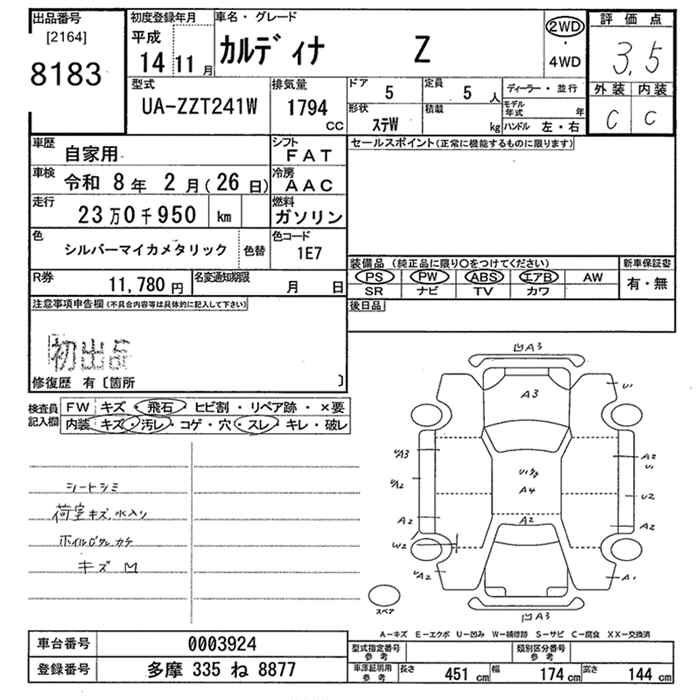 出品番号
[2164]
8183
初度登録年月
平成
14 11 月
車名・グレード
カルディナ Z
2WD
・
4WD
評価点
3.5
外装 内装
C C
型式
UA-ZZT241W
排気量
1794
CC
ドア
5
定員
5 人
形状
ステW
積載
kg
ディーラー・並行
モデル年式 年
ハンドル 左・右
車歴
自家用
シフト
FAT
車検
令和 8年 2月(26日)
冷房
AAC
走行
23万0千950 km
燃料
ガソリン
色
シルバーマイカメタリック
色替
色コード
1E7
R券
11,780 円
名変通知期限
月 日
セールスポイント(正常に機能するものに限ります)
装備品 (純正品に限り〇をつけてください)
PS PW ABS エアB AW
SR ナビ TV カワ
新車保証書
有・無
後日品
注意事項申告欄(不具合内容等は具体的に記入して下さい)
初出品
修復歴 有〔箇所 〕
検査員
記入欄
FW キズ・飛石・ヒビ割・リペア跡・×要
内装 キズ・汚レ・コゲ・穴・スレ・キレ・破レ
シートシミ
荷室キズ、水入り
ホイルCタレ、カケ
キズ M
凹A3
A3
U1
UA3
A2
U1
UA2
A4
U2
A2
A2
A2
W2
UA2
A1
スペア
凹A3
A-キズ E-エクボ U-凹み W-補修跡 S-サビ C-腐食 XX-交換済
車台番号
0003924
登録番号
多摩 335 ね 8877
型式指定番号
参考
類別区分番号
参考
車庫証明用
参考
長さ 451 cm 幅 174 cm 高さ 144 cm